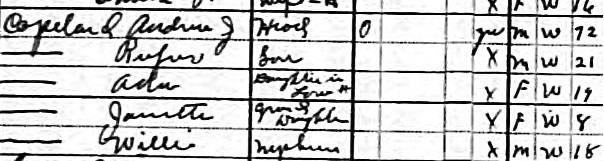 X F W 16
Copeland Andrew J Head O yes M W 72
— Rufus Son X M W 21
— Ada Daughter in Law X F W 19
— Janette Grand Daughter X F W 8
— Willie Nephew X M W 18